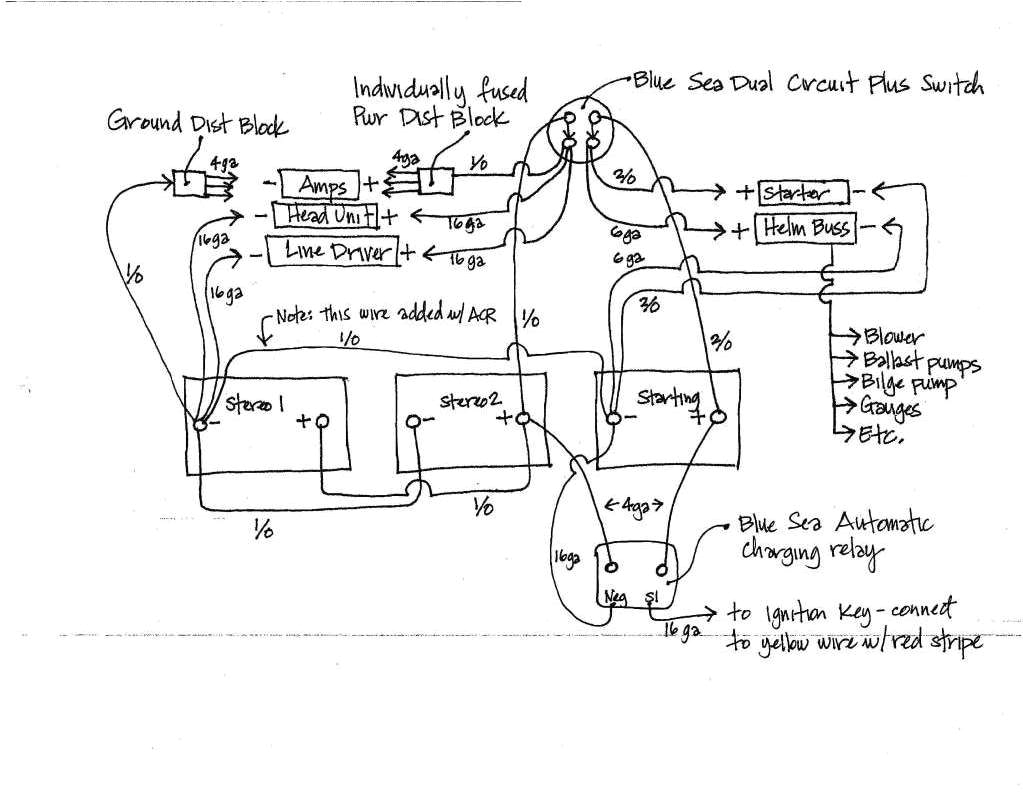 Blue Sea Dual Circuit Plus Switch
Individually fused
Pwr Dist Block
Ground Dist Block
4ga
4ga
1/0
2/0
- Amps +
+ Starter -
- Head Unit +
16ga
16ga
6ga
+ Helm Buss -
- Line Driver +
16ga
6ga
1/0
16ga
2/0
Note: this wire added w/ ACR
1/0
1/0
2/0
Blower
Ballast pumps
Bilge pump
Gauges
Etc.
Stereo 1
- +
Stereo 2
- +
Starting
- +
1/0
1/0
4ga
16ga
Blue Sea Automatic
Charging relay
Neg SI
16 ga
to Ignition Key - connect
to yellow wire w/ red stripe